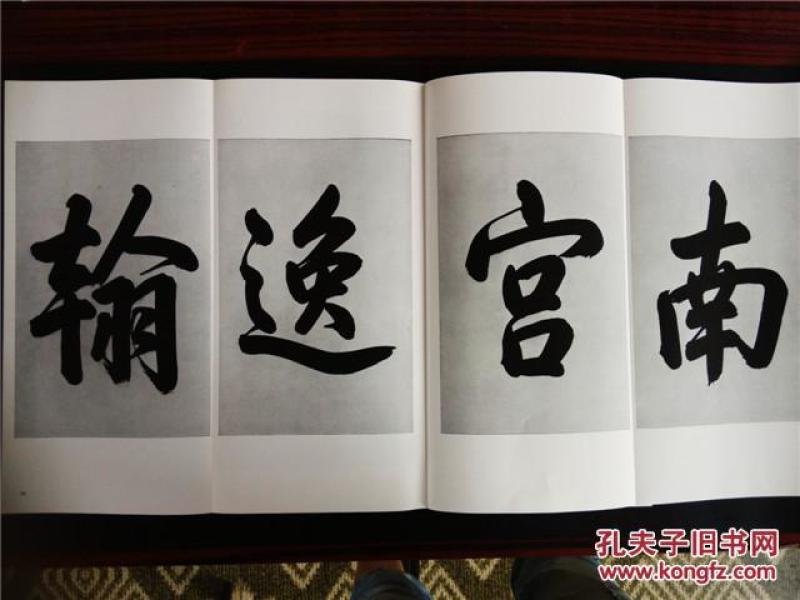 南宫逸翰
孔夫子旧书网
www.kongfz.com